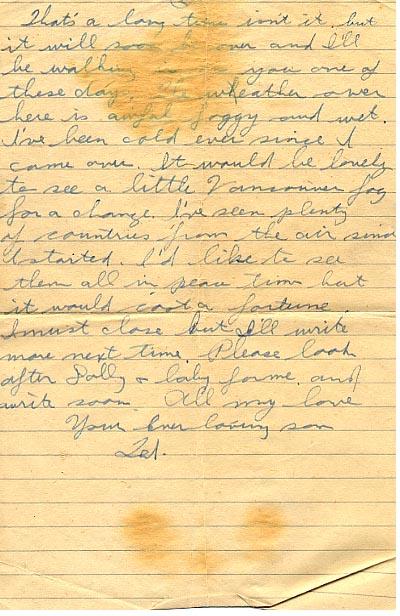 That's a long time isn't it, but
it will soon be over and I'll
be walking in on you one of
these days. The wheather over
here is awful foggy and wet.
I've been cold ever since I
came over. It would be lovely
to see a little Vancouver fog
for a change. I've seen plenty
of countries from the air since
I started. I'd like to see
them all in peace time but
it would cost a fortune.
I must close but I'll write
more next time. Please look
after Dolly & baby for me. and
write soon. All my love
Your Ever loving son